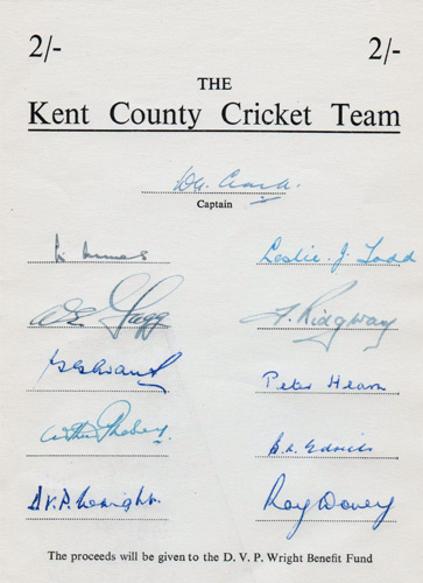 2/- 2/-
THE
Kent County Cricket Team
D.G. Clark.
Captain
L. Ames Leslie J. Todd
A.E. Fagg F. Ridgway
T.G. Evans Peter Hearn
Arthur Phebey. B.R. Edrich
D.V.P. Wright. Ray Dovey
The proceeds will be given to the D. V. P. Wright Benefit Fund